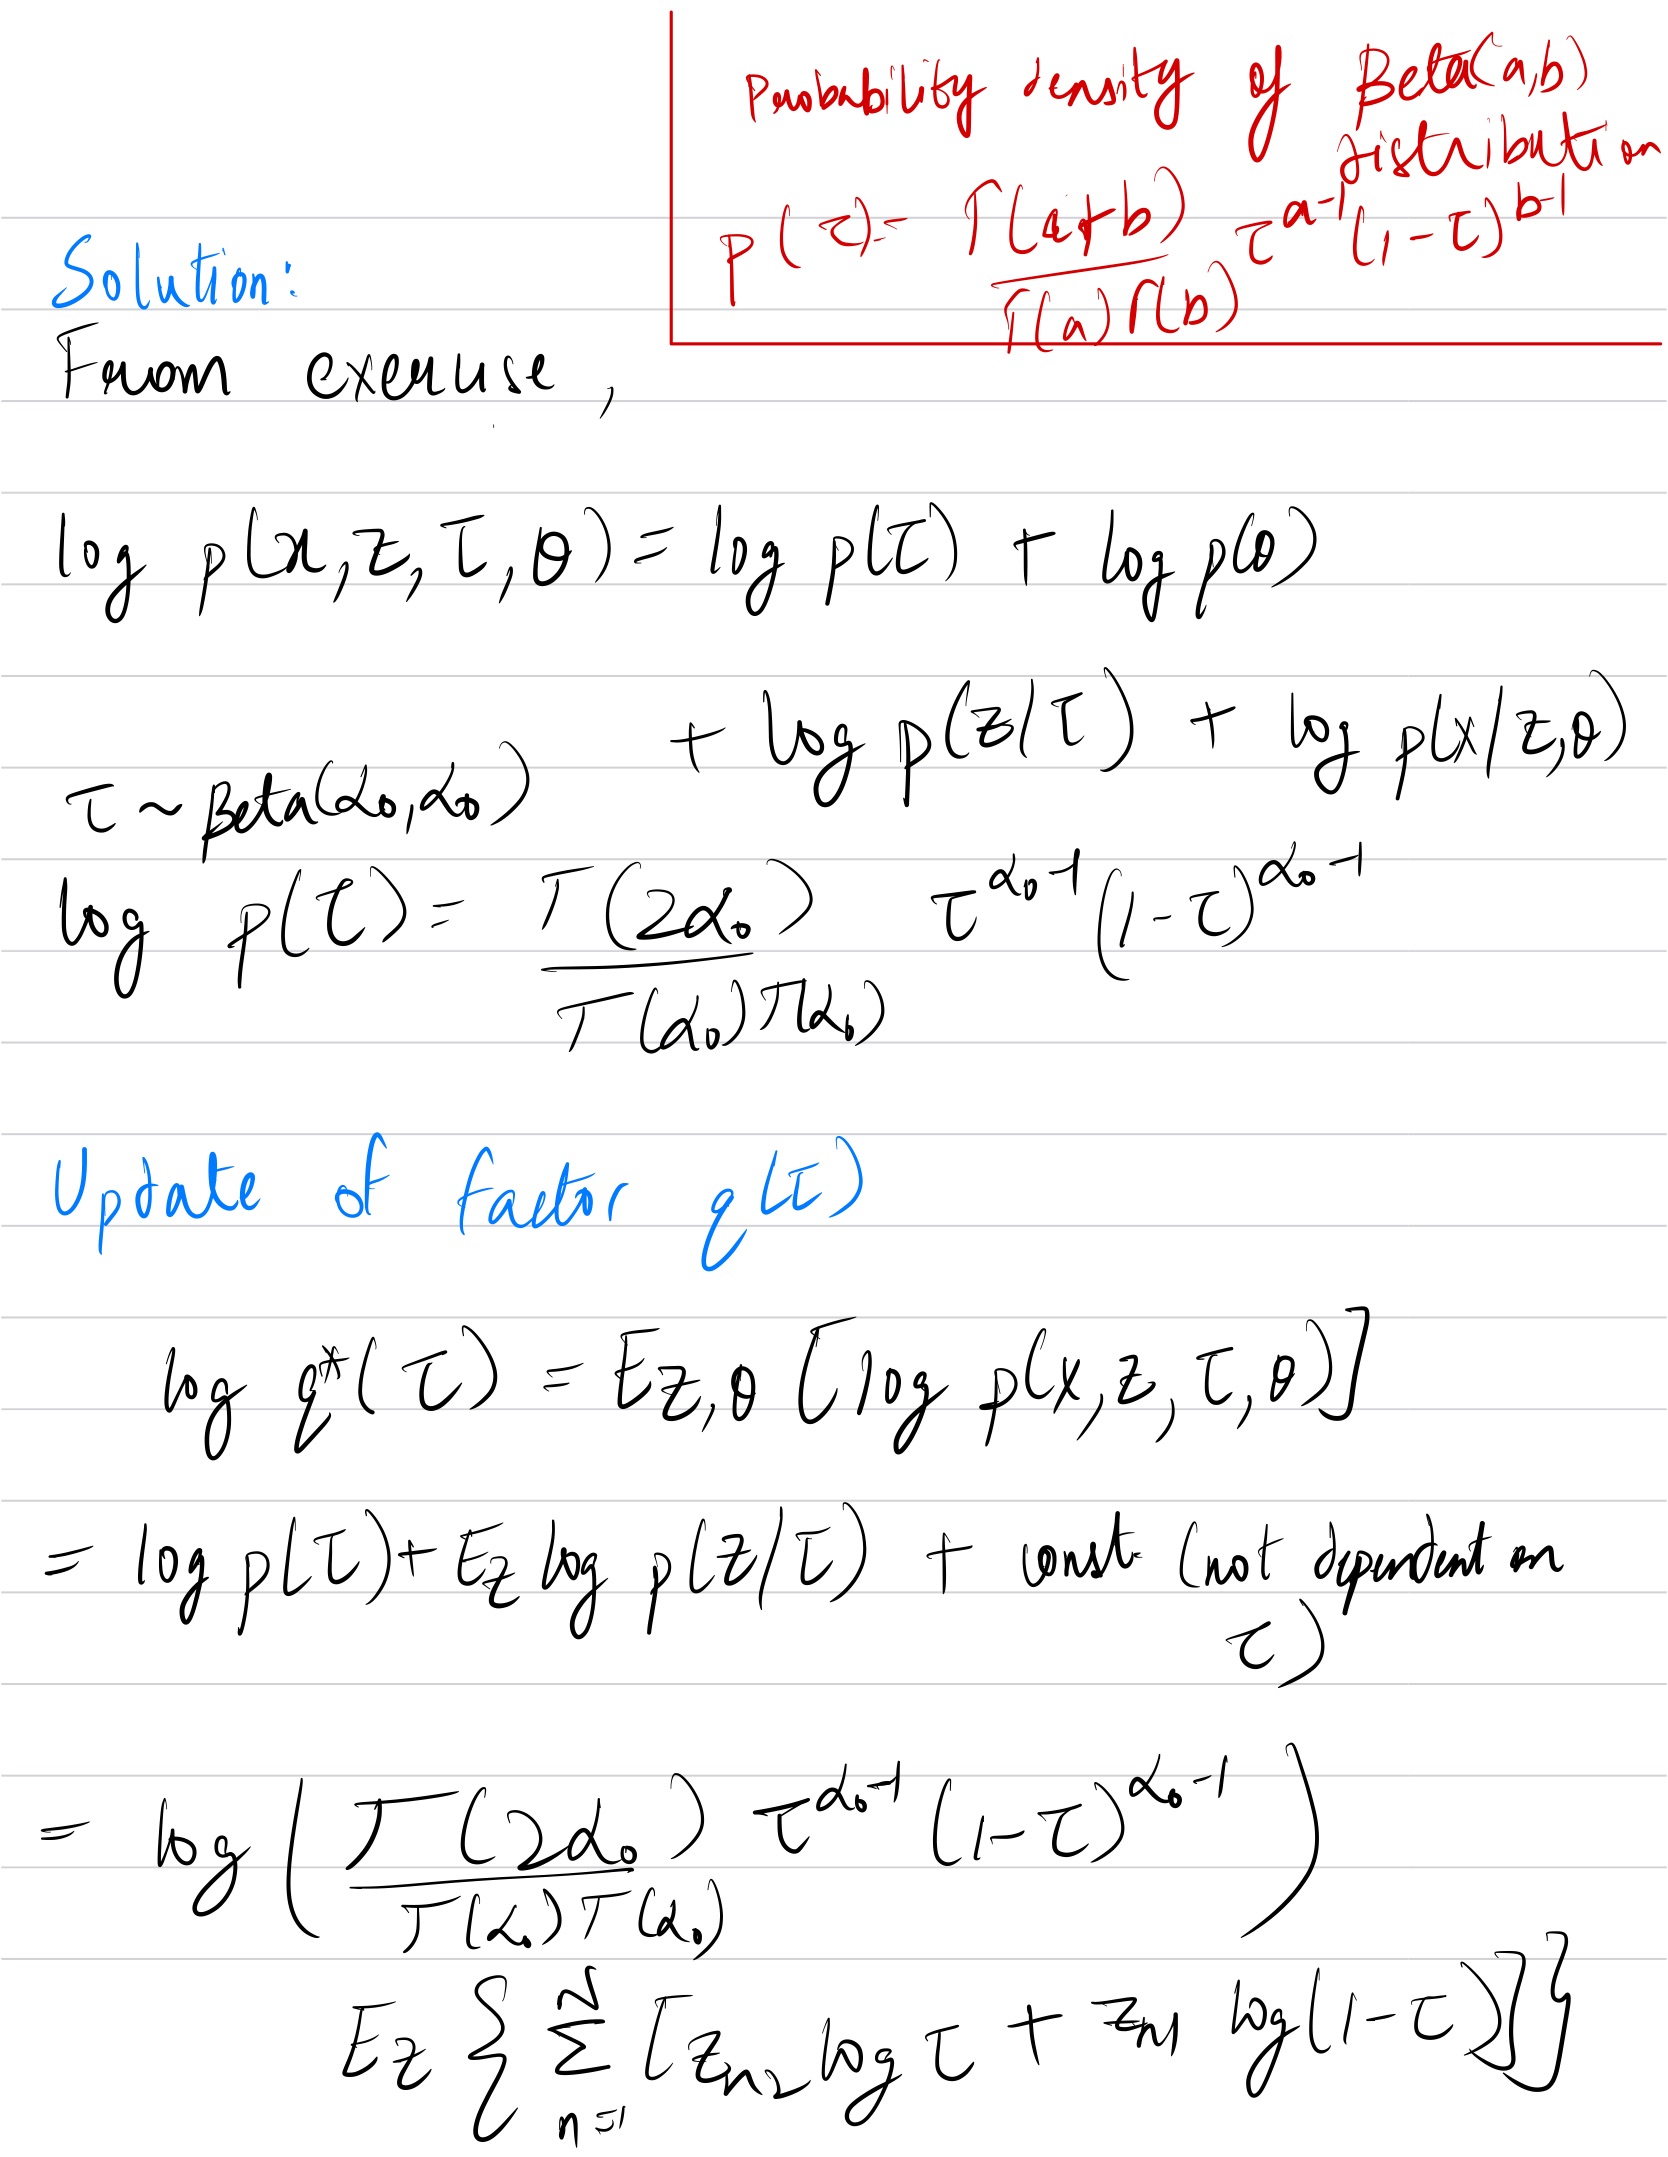 Probability density of Beta(a,b)
distribution
p(τ)= Γ(a+b) / Γ(a)Γ(b) τ^{a-1} (1-τ)^{b-1}
Solution:
From exercise,
log p(x,z,τ,θ) = log p(τ) + log p(θ)
+ log p(z/τ) + log p(x/z,θ)
τ ~ Beta(α₀,α₀)
log p(τ) = Γ(2α₀) / Γ(α₀)Γ(α₀) τ^{α₀-1} (1-τ)^{α₀-1}
Update of factor q(τ)
log q*(τ) = E_{z,θ} [log p(x,z,τ,θ)]
= log p(τ) + E_z log p(z/τ) + const (not dependent on
τ)
= log ( Γ(2α₀) / Γ(α₀)Γ(α₀) τ^{α₀-1} (1-τ)^{α₀-1} )
E_z { Σ_{n=1}^{N} [z_{n2} log τ + z_{n1} log(1-τ)] }